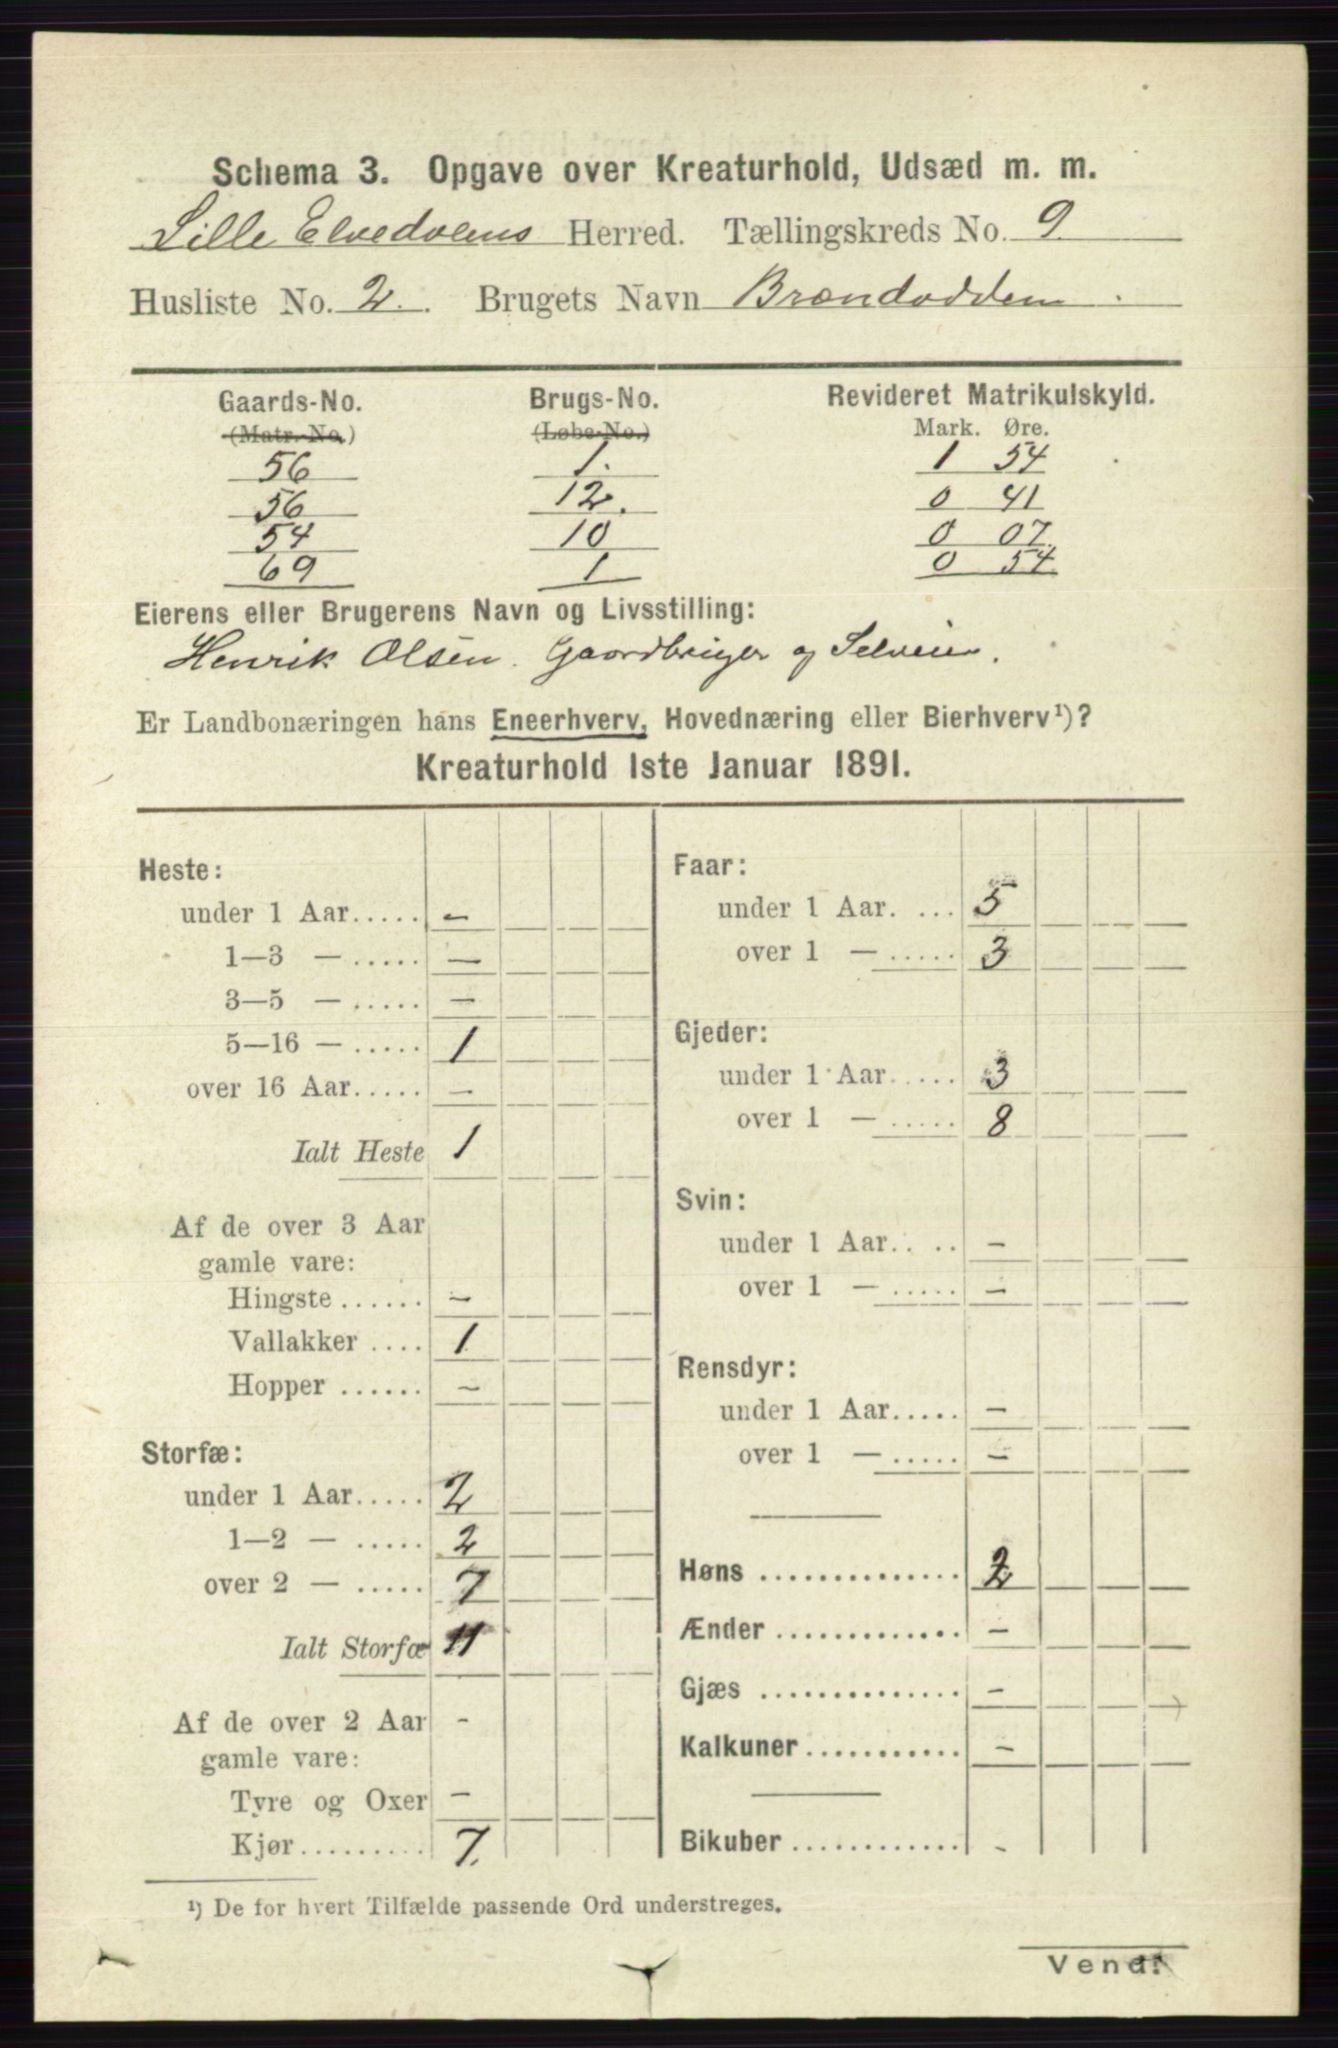 Schema 3. Opgave over Kreaturhold, Udsæd m. m.
Lille Elvedolens Herred. Tællingskreds No. 9.
Husliste No. 2. Brugets Navn Brændodden.
Gaards-No. Brugs-No. Revideret Matrikulskyld.
(Matr.-No.) (Løbe-No.) Mark. Øre.
56 1. 1 54
56 12. 0 41
54 10 0 07.
69 1 0 54
Eierens eller Brugerens Navn og Livsstilling:
Henrik Olsen. Gaardbruger og Selveier.
Er Landbonæringen hans Eneerhverv, Hovednæring eller Bierhverv¹)?
Kreaturhold 1ste Januar 1891.
Heste:
under 1 Aar..... –
1—3 — ..... –
3—5 — ..... –
5—16 — ..... 1
over 16 Aar..... –
Ialt Heste 1
Af de over 3 Aar
gamle vare:
Hingste ...... –
Vallakker .... 1
Hopper ...... –
Storfæ:
under 1 Aar..... 2
1—2 — ..... 2
over 2 — ..... 7
Ialt Storfæ 11
Af de over 2 Aar –
gamle vare:
Tyre og Oxer –
Kjør......... 7.
Faar:
under 1 Aar. ... 5
over 1 — ..... 3
Gjeder:
under 1 Aar..... 3
over 1 — ..... 8
Svin:
under 1 Aar.. .. –
over 1 — ..... –
Rensdyr:
under 1 Aar..... –
over 1 — ..... –
Høns .............. 2
Ænder ............. –
Gjæs .............. –
Kalkuner........... –
Bikuber ............ –
¹) De for hvert Tilfælde passende Ord understreges.
Vend!